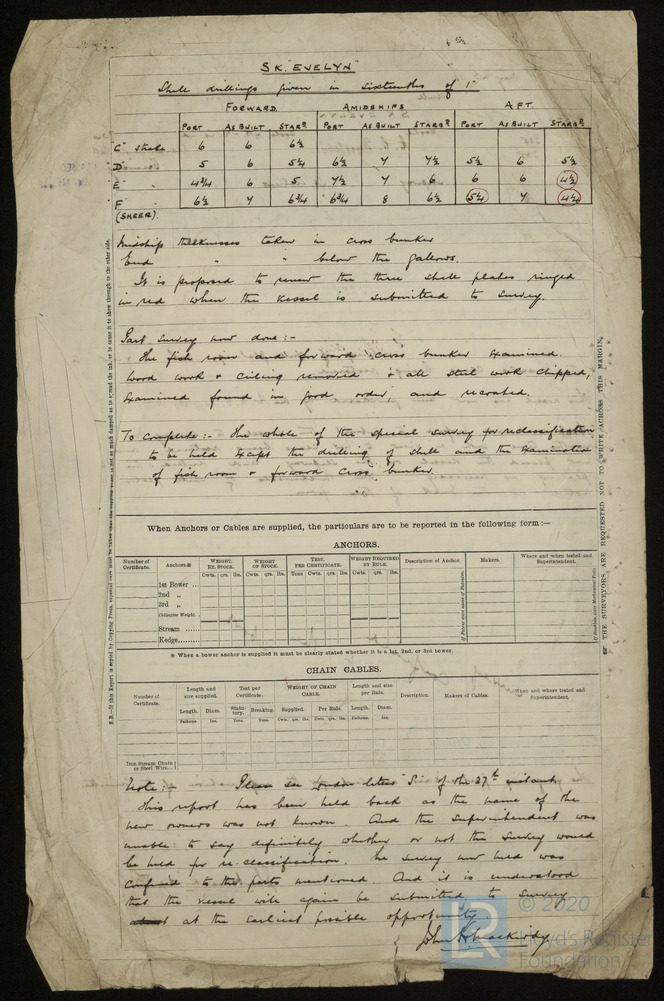 S K. "EVELYN"
Shell drillings given in sixteenths of 1"
FORWARD. AMIDSHIPS AFT.
PORT AS BUILT STARBD. PORT AS BUILT STARBD. PORT AS BUILT STARBD.
C strake 6 6 6½
D " 5 6 5¼ 6½ 7 7½ 5½ 6 5½
E " 4¾ 6 5 7½ 7 6 6 6 4½
F " 6½ 7 6¾ 6¾ 8 6½ 5¼ 7 4¼
(SHEER).
Midship thicknesses taken in cross bunker
End " " below the gallows.
It is proposed to renew the three shell plates ringed
in red when the vessel is submitted to survey.
Part survey now done:-
The fish room and forward cross bunker examined.
Wood work & Ceiling removed & all steel work chipped,
examined found in good order, and recoated.
To complete:- The whole of the special survey for reclassification
to be held except the drilling of shell and the examination
of fish room & forward cross bunker.
When Anchors or Cables are supplied, the particulars are to be reported in the following form :—
ANCHORS.
Number of Certificate. Anchors.* WEIGHT. EX. STOCK. WEIGHT OF STOCK. TEST. PER CERTIFICATE. WEIGHT REQUIRED BY RULE. Description of Anchor. Makers. Where and when tested and Superintendent.
Cwts. qrs. lbs. Cwts. qrs. lbs. Tons Cwts. qrs. lbs. Cwts. qrs. lbs.
1st Bower ..
2nd "
3rd "
Collective Weight.
Stream
Kedge
* When a bower anchor is supplied it must be clearly stated whether it is a 1st, 2nd, or 3rd bower.
CHAIN CABLES.
Number of Certificate. Length and size supplied. Test per Certificate. WEIGHT OF CHAIN CABLE. Length and size per Rule. Description. Makers of Cables. Where and when tested and Superintendent.
Length. Diam. Statutory. Breaking. Supplied. Per Rule. Length. Diam.
Fathoms. Ins. Tons. Tons. Cwts. qrs. lbs. Cwts. qrs. lbs. Fathoms. Ins.
Iron Stream Chain or Steel Wire
Note:- Please see London letter "S" of the 27th instant.
This report has been held back as the name of the
new owners was not known And the Superintendent was
unable to say definitely whether or not the survey would
be held for re-classification. The survey now held was
confined to the parts mentioned. And it is understood
that the vessel will again be submitted to survey
at the earliest possible opportunity.
THE SURVEYORS ARE REQUESTED NOT TO WRITE ACROSS THIS MARGIN.
© 2020
Lloyd's Register
Foundation
LR